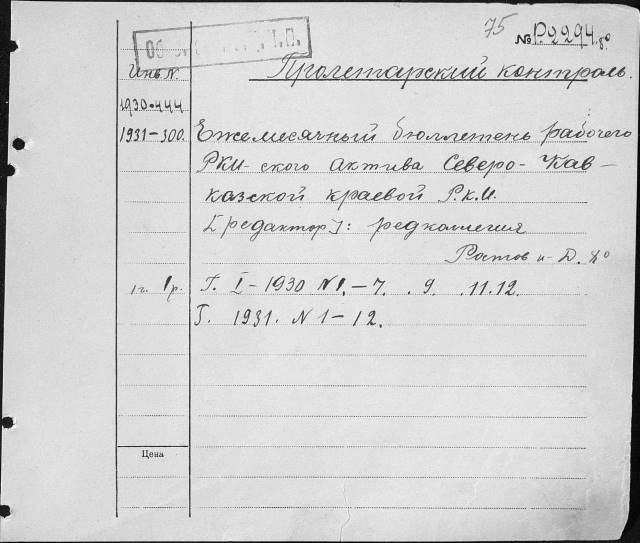 75 № P.2294
Инв. N.
Пролетарский контроль.
1930-444
1931-300. Ежемесячный бюллетень рабочего
РКИ-ского актива Северо-Кав-
казской краевой Р.К.И.
[редактор]: редколлегия
Ростов н-Д.
1г. 1р. Г. I-1930 N1.-7. .9. .11.12.
Г. 1931. N1-12.
Цена